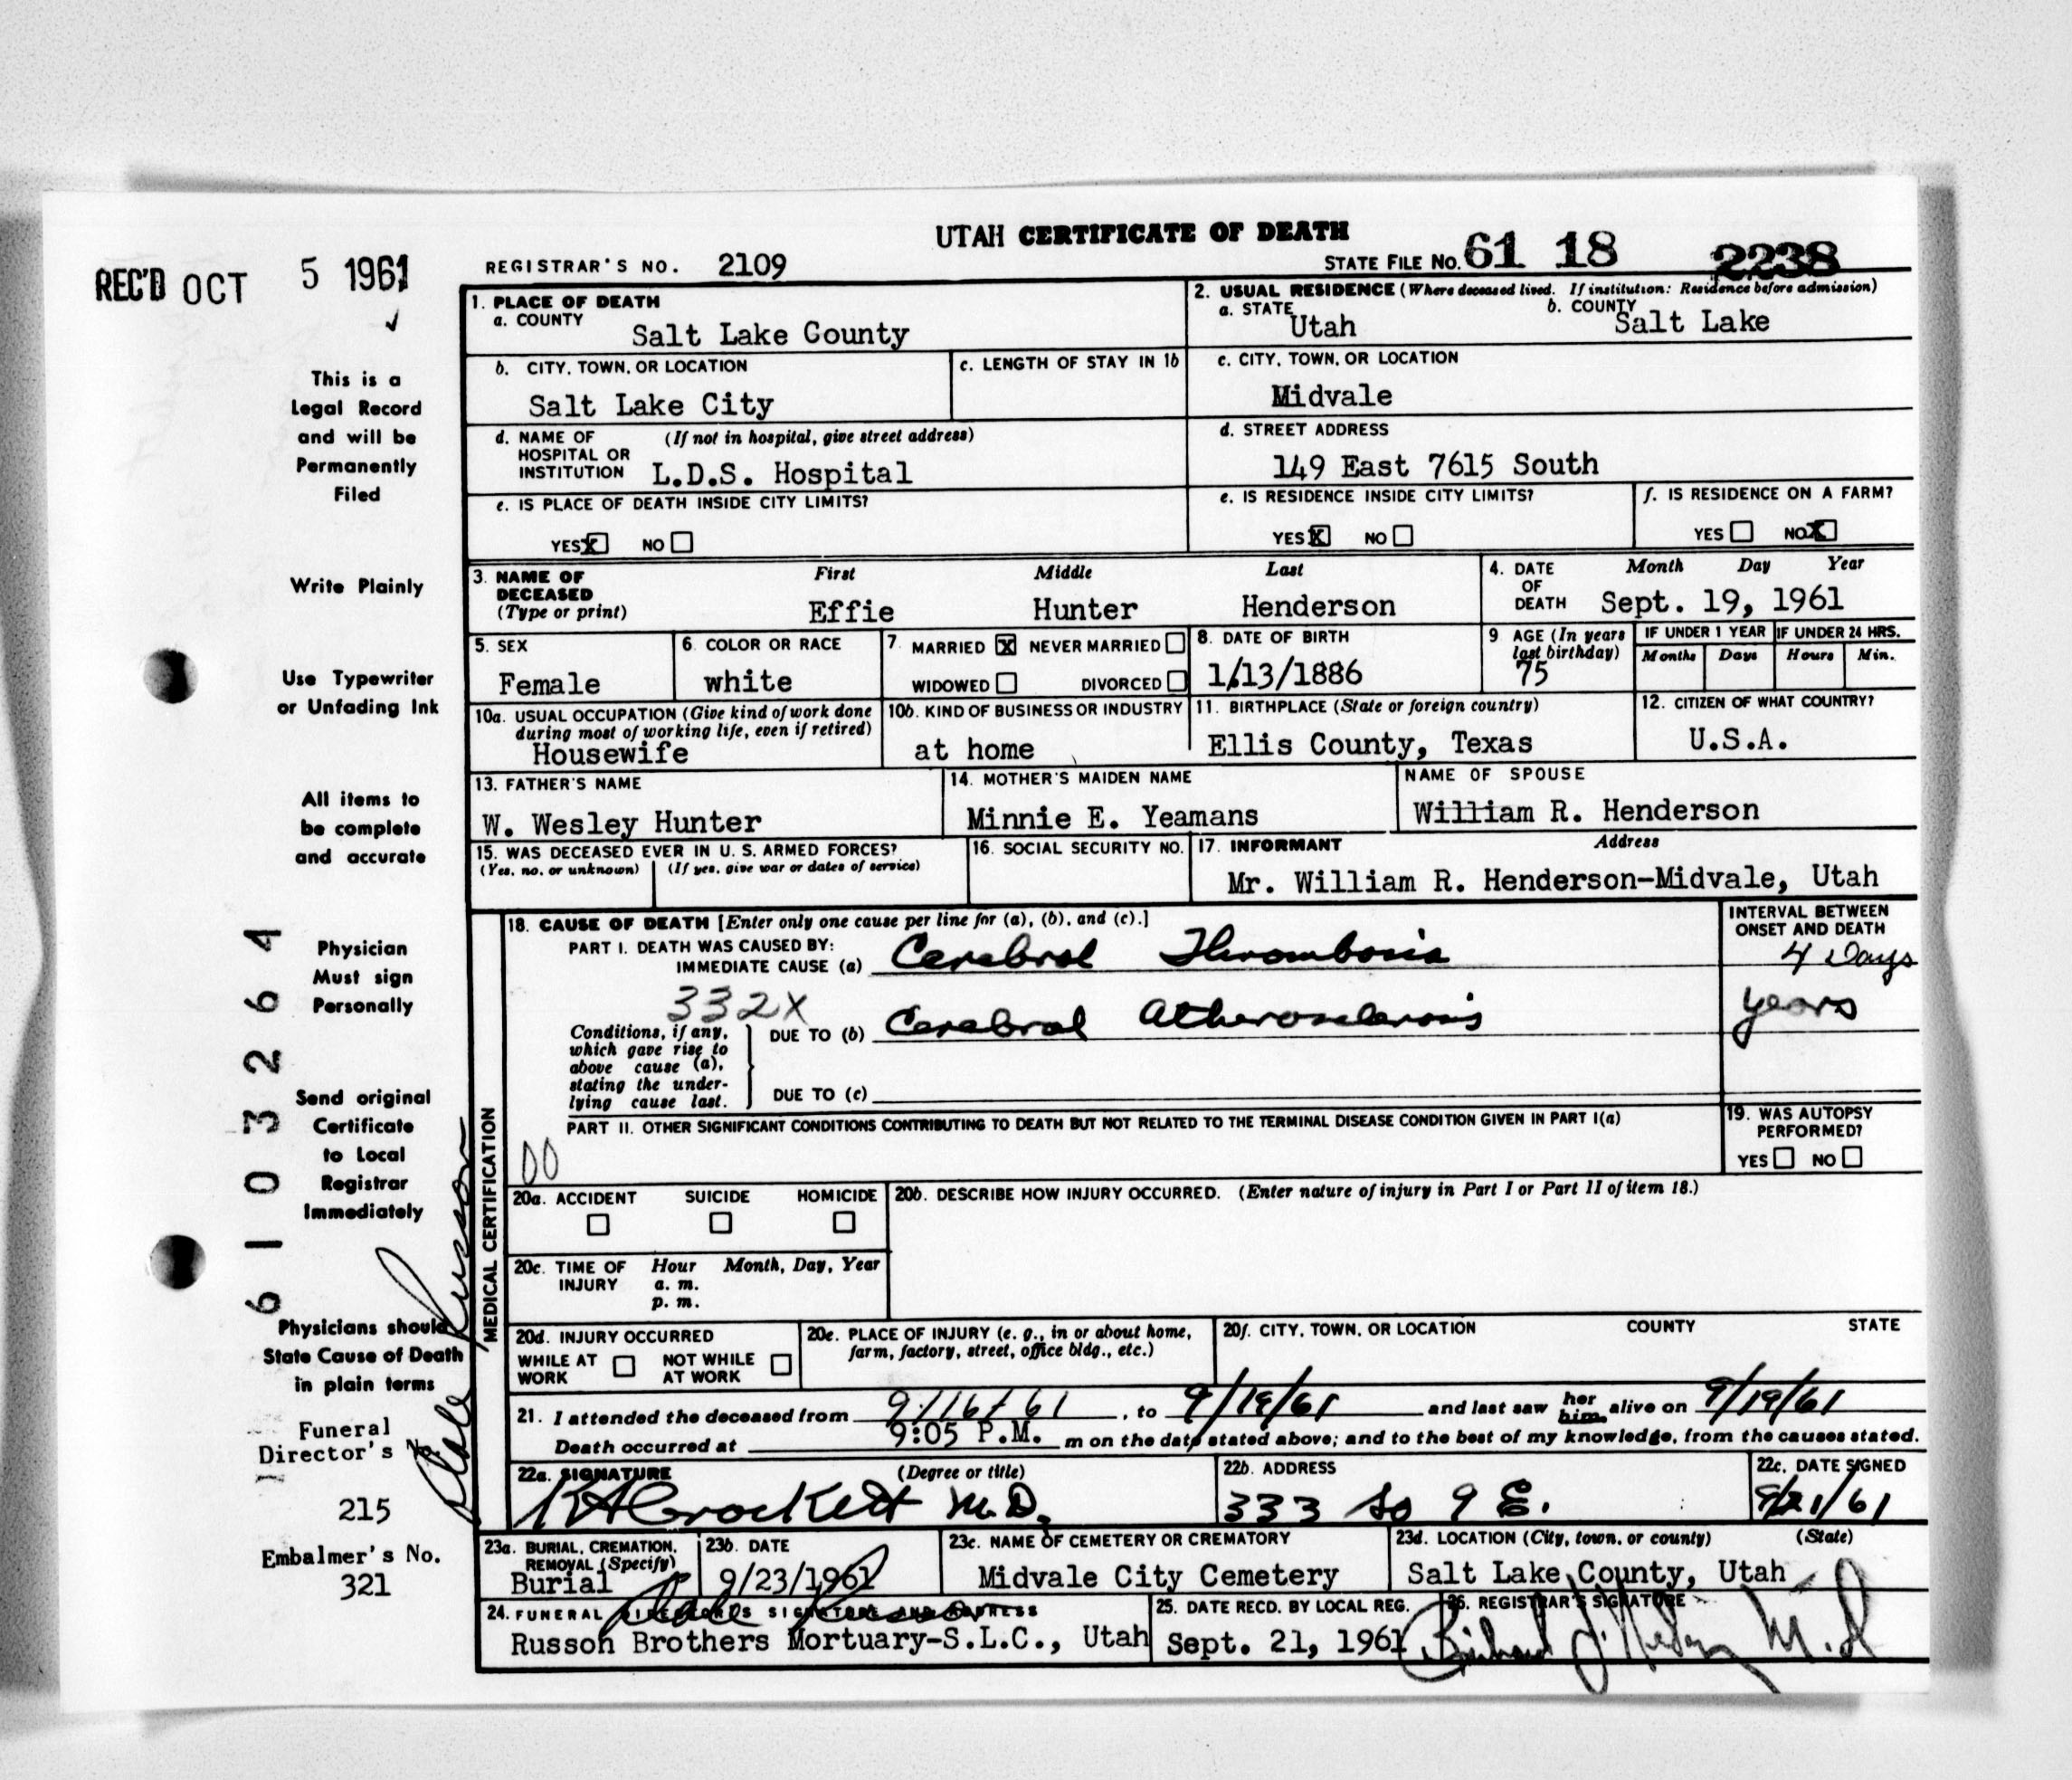 UTAH CERTIFICATE OF DEATH
REC'D OCT 5 1961
REGISTRAR'S NO. 2109
STATE FILE NO. 61 18 2238
This is a
Legal Record
and will be
Permanently
Filed
Write Plainly
Use Typewriter
or Unfading Ink
All items to
be complete
and accurate
Physician
Must sign
Personally
Send original
Certificate
to Local
Registrar
Immediately
Physicians should
State Cause of Death
in plain terms
Funeral
Director's No
215
Embalmer's No.
321
6103264
Dale Russon
1. PLACE OF DEATH
a. COUNTY
Salt Lake County
2. USUAL RESIDENCE (Where deceased lived. If institution: Residence before admission)
a. STATE Utah
b. COUNTY Salt Lake
b. CITY, TOWN, OR LOCATION
Salt Lake City
c. LENGTH OF STAY IN 1b
c. CITY, TOWN, OR LOCATION
Midvale
d. NAME OF (If not in hospital, give street address)
HOSPITAL OR
INSTITUTION L.D.S. Hospital
d. STREET ADDRESS
149 East 7615 South
e. IS PLACE OF DEATH INSIDE CITY LIMITS?
YES X NO
e. IS RESIDENCE INSIDE CITY LIMITS?
YES X NO
f. IS RESIDENCE ON A FARM?
YES NO X
3. NAME OF
DECEASED
(Type or print)
First Middle Last
Effie Hunter Henderson
4. DATE
OF
DEATH
Month Day Year
Sept. 19, 1961
5. SEX
Female
6. COLOR OR RACE
white
7. MARRIED X NEVER MARRIED
WIDOWED DIVORCED
8. DATE OF BIRTH
1/13/1886
9 AGE (In years
last birthday)
75
IF UNDER 1 YEAR
Months Days
IF UNDER 24 HRS.
Hours Min.
10a. USUAL OCCUPATION (Give kind of work done
during most of working life, even if retired)
Housewife
10b. KIND OF BUSINESS OR INDUSTRY
at home
11. BIRTHPLACE (State or foreign country)
Ellis County, Texas
12. CITIZEN OF WHAT COUNTRY?
U.S.A.
13. FATHER'S NAME
W. Wesley Hunter
14. MOTHER'S MAIDEN NAME
Minnie E. Yeamans
NAME OF SPOUSE
William R. Henderson
15. WAS DECEASED EVER IN U. S. ARMED FORCES?
(Yes, no, or unknown) (If yes, give war or dates of service)
16. SOCIAL SECURITY NO.
17. INFORMANT Address
Mr. William R. Henderson-Midvale, Utah
MEDICAL CERTIFICATION
18. CAUSE OF DEATH [Enter only one cause per line for (a), (b), and (c).]
PART I. DEATH WAS CAUSED BY:
IMMEDIATE CAUSE (a) Cerebral Thrombosis
INTERVAL BETWEEN
ONSET AND DEATH
4 Days
332X
Conditions, if any,
which gave rise to
above cause (a),
stating the under-
lying cause last.
DUE TO (b) Cerebral Atherosclerosis
years
DUE TO (c)
PART II. OTHER SIGNIFICANT CONDITIONS CONTRIBUTING TO DEATH BUT NOT RELATED TO THE TERMINAL DISEASE CONDITION GIVEN IN PART I(a)
00
19. WAS AUTOPSY
PERFORMED?
YES NO
20a. ACCIDENT SUICIDE HOMICIDE
20b. DESCRIBE HOW INJURY OCCURRED. (Enter nature of injury in Part I or Part II of item 18.)
20c. TIME OF
INJURY
Hour Month, Day, Year
a. m.
p. m.
20d. INJURY OCCURRED
WHILE AT
WORK
NOT WHILE
AT WORK
20e. PLACE OF INJURY (e. g., in or about home,
farm, factory, street, office bldg., etc.)
20f. CITY, TOWN, OR LOCATION COUNTY STATE
21. I attended the deceased from 9/16/61, to 9/19/61 and last saw her him alive on 9/19/61
Death occurred at 9:05 P.M. m on the date stated above; and to the best of my knowledge, from the causes stated.
22a. SIGNATURE (Degree or title)
Crockett M.D.
22b. ADDRESS
333 So 9 E.
22c. DATE SIGNED
9/21/61
23a. BURIAL, CREMATION,
REMOVAL (Specify)
Burial
23b. DATE
9/23/1961
23c. NAME OF CEMETERY OR CREMATORY
Midvale City Cemetery
23d. LOCATION (City, town, or county) (State)
Salt Lake County, Utah
24. FUNERAL DIRECTOR'S SIGNATURE AND ADDRESS
Dale Russon
Russon Brothers Mortuary-S.L.C., Utah
25. DATE RECD. BY LOCAL REG.
Sept. 21, 1961
26. REGISTRAR'S SIGNATURE
M.D